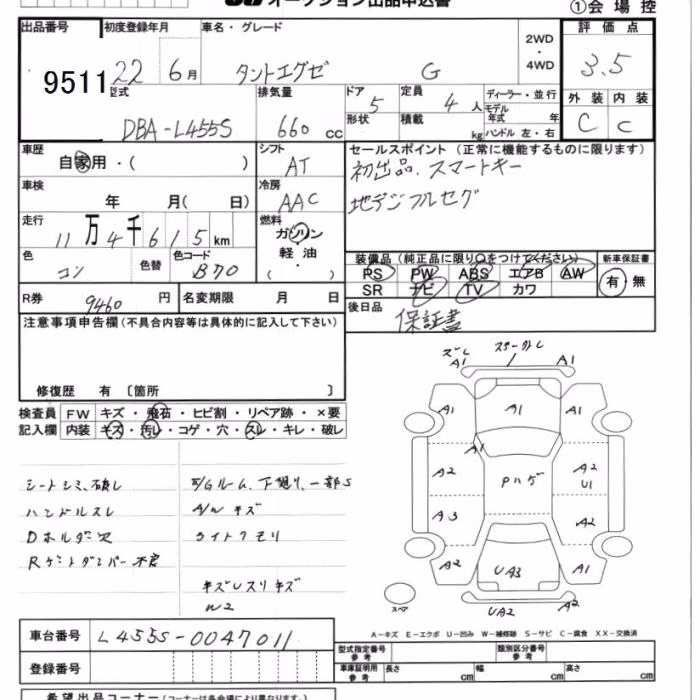 オークション出品申込書
①会場控
出品番号 初度登録年月 車名・グレード 評価点
9511 22 6月 タントエグゼ G 2WD・4WD 3.5
型式 排気量 ドア 定員 ディーラー・並行 外装 内装
DBA-L455S 660cc 5 4人 モデル年式 年 C C
形状 積載 kg ハンドル 左・右
車歴 シフト セールスポイント (正常に機能するものに限ります)
自家用・( ) AT 初出品.スマートキー
車検 冷房 地デジフルセグ
年 月( 日) AAC
走行 燃料
11万4千615km ガソリン
色 色替 色コード 軽油
コン B70 ・( )
装備品(純正品に限り○をつけてください) 新車保証書
PS PW ABS エアB AW 有・無
SR ナビ TV カワ
R券 9460円 名変期限 月 日 後日品
保証書
注意事項申告欄(不具合内容等は具体的に記入して下さい)
修復歴 有 〔箇所 〕
検査員 FW キズ・飛石・ヒビ割・リペア跡・×要
記入欄 内装 キズ・汚レ・コゲ・穴・スレ・キレ・破レ
ズレ
A1 A1
A1 A1 A1
A1
A2 Pハゲ A2
U1
A3 A2
A2 UA3 A1
スペア UA2 A2
シートシミ、破レ
ハンドルスレ
Dホルダー欠
Rゲートダンパー不良
E/Gルーム、下廻り、一部S
A/W キズ
ライトクモリ
キズレスリキズ
W2
A-キズ E-エクボ U-凹み W-補修跡 S-サビ C-腐食 XX-交換済
車台番号 L455S-0047011
型式指定番号 参考 類別区分番号 参考
登録番号 車庫証明用 参考 長さ cm 幅 cm 高さ cm
希望出品コーナー(コーナーは各会場により異なります)